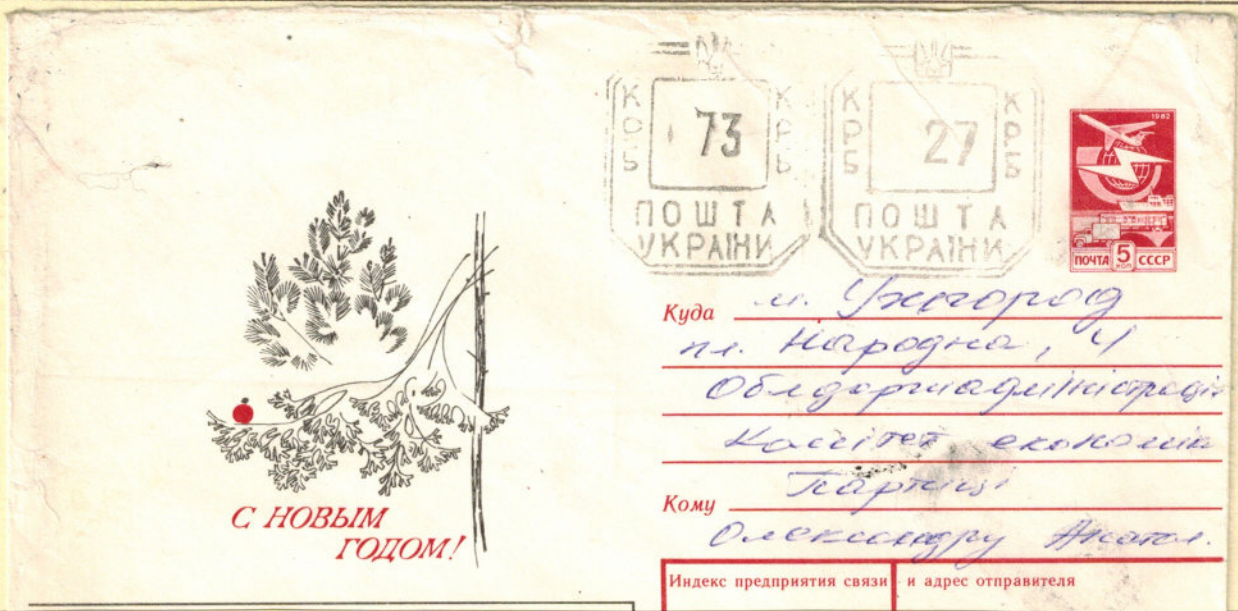 КРБ 73 КРБ
ПОШТА
УКРАЇНИ
КРБ 27 КРБ
ПОШТА
УКРАЇНИ
1982
ПОЧТА 5 КОП СССР
С НОВЫМ
ГОДОМ!
Куда м. Ужгород
пл. Народна, 4
Облдержадміністрація
Комітет економіки
Кому
Олександру Анатол.
Индекс предприятия связи и адрес отправителя